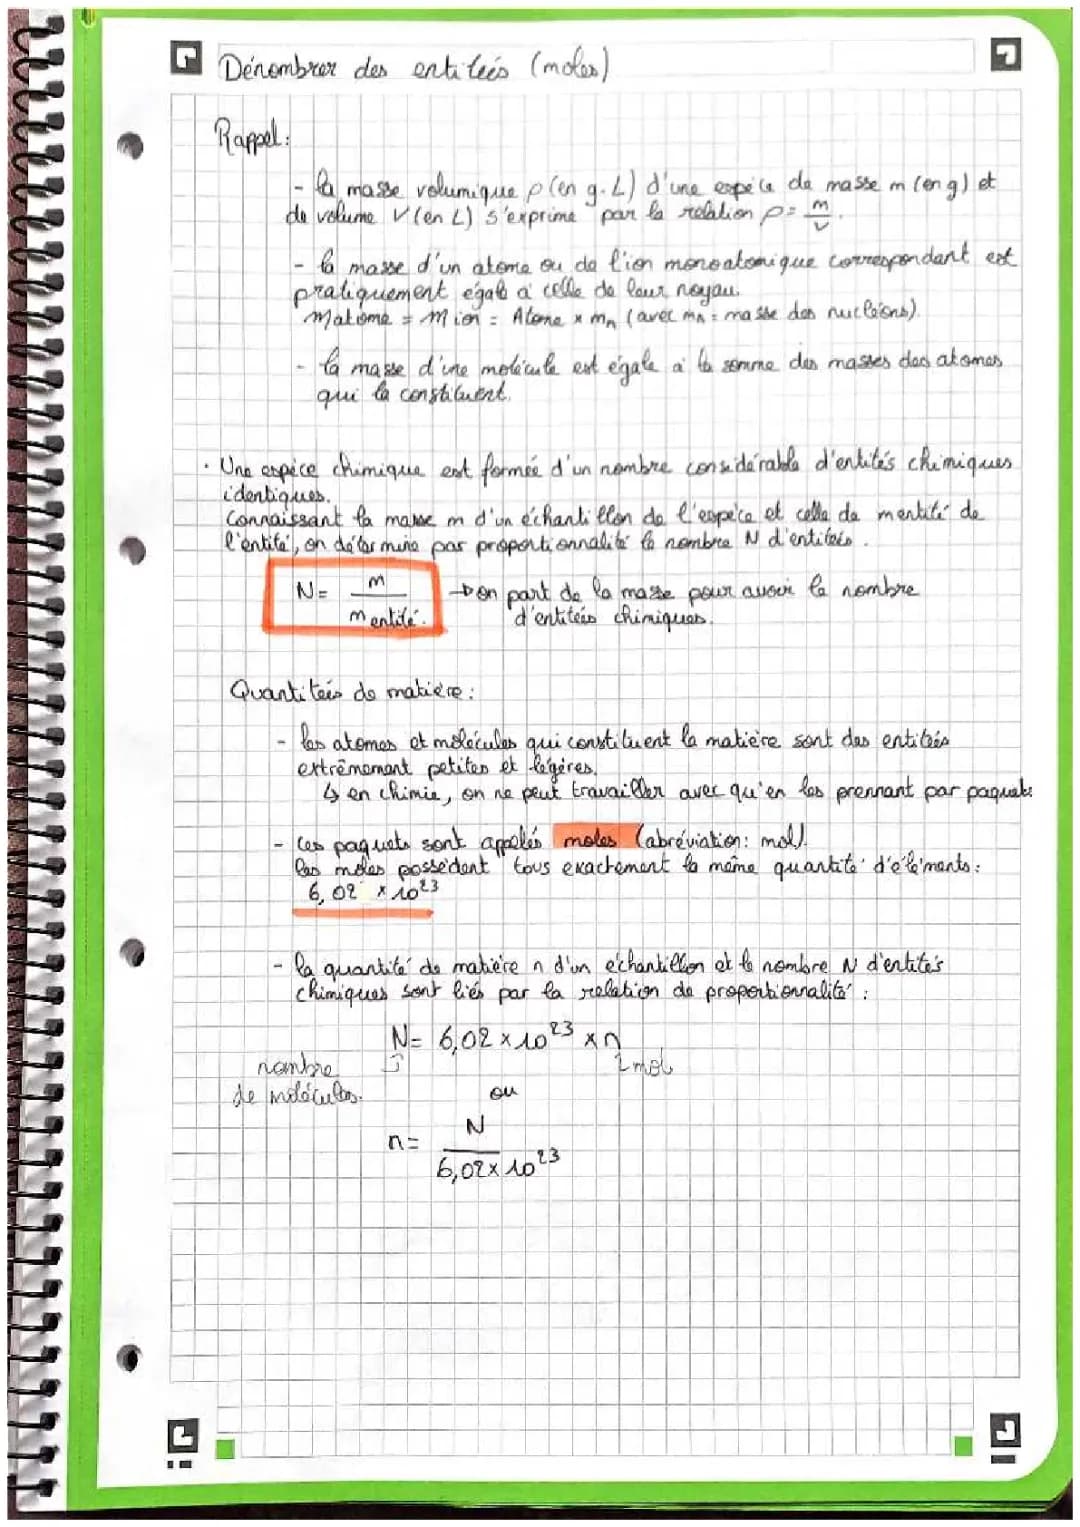 Dénombrer des entiteés (moles)
Rappel:
- la masse volumique ρ (en g.L) d'une espèce de masse m (en g) et
de volume V (en L) s'exprime par la relation ρ = m/V.
- la masse d'un atome ou de l'ion monoatomique correspondant est
pratiquement égale à celle de leur noyau.
matome = mion = Atome × mn (avec mn = masse des nucléons).
- la masse d'une molécule est égale à la somme des masses des atomes
qui la constituent.
· Une espèce chimique est formée d'un nombre considérable d'entités chimiques
identiques.
Connaissant la masse m d'un échantillon de l'espèce et celle de mentité de
l'entité, on détermine par proportionnalité le nombre N d'entités.
N = m/mentité. → on part de la masse pour avoir le nombre
d'entités chimiques.
Quantiteés de matière:
- les atomes et molécules qui constituent la matière sont des entités
extrêmement petites et légères.
↳ en chimie, on ne peut travailler avec qu'en les prennant par paquets
- ces paquets sont appelés moles (abréviation: mol).
les moles possèdent tous exactement la même quantité d'éléments:
6,02 × 10²³
- la quantité de matière n d'un échantillon et le nombre N d'entités
chimiques sont liés par la relation de proportionnalité:
N = 6,02 × 10²³ × n
nombre
de molécules.
mol
ou
n = N/6,02 × 10²³